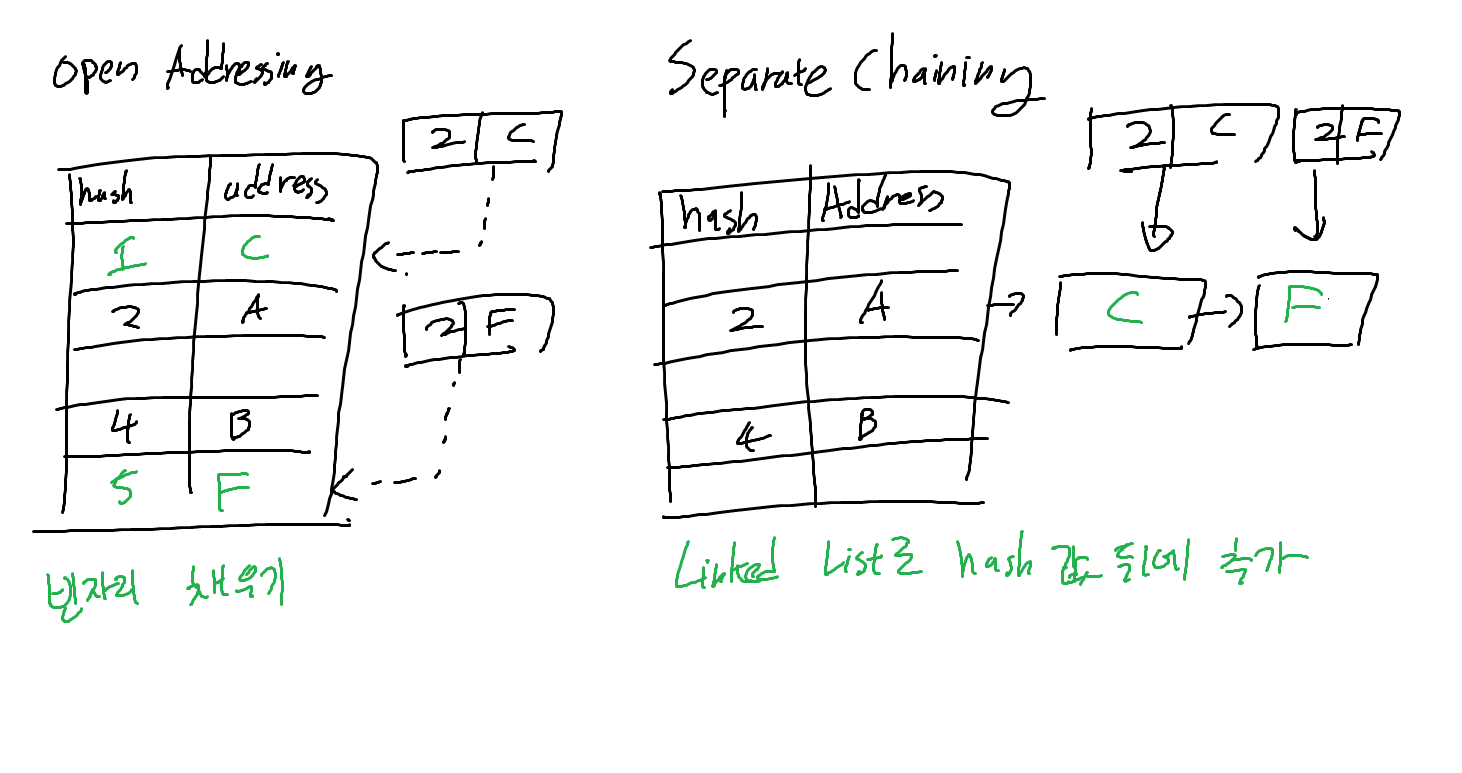 Open Addressing
2 C
hash address
1 C
2 A
2 F
4 B
5 F
빈자리 채우기
Separate Chaining
2 C
2 F
hash Address
2 A
C
F
4 B
Linked List로 hash 값 뒤에 추가